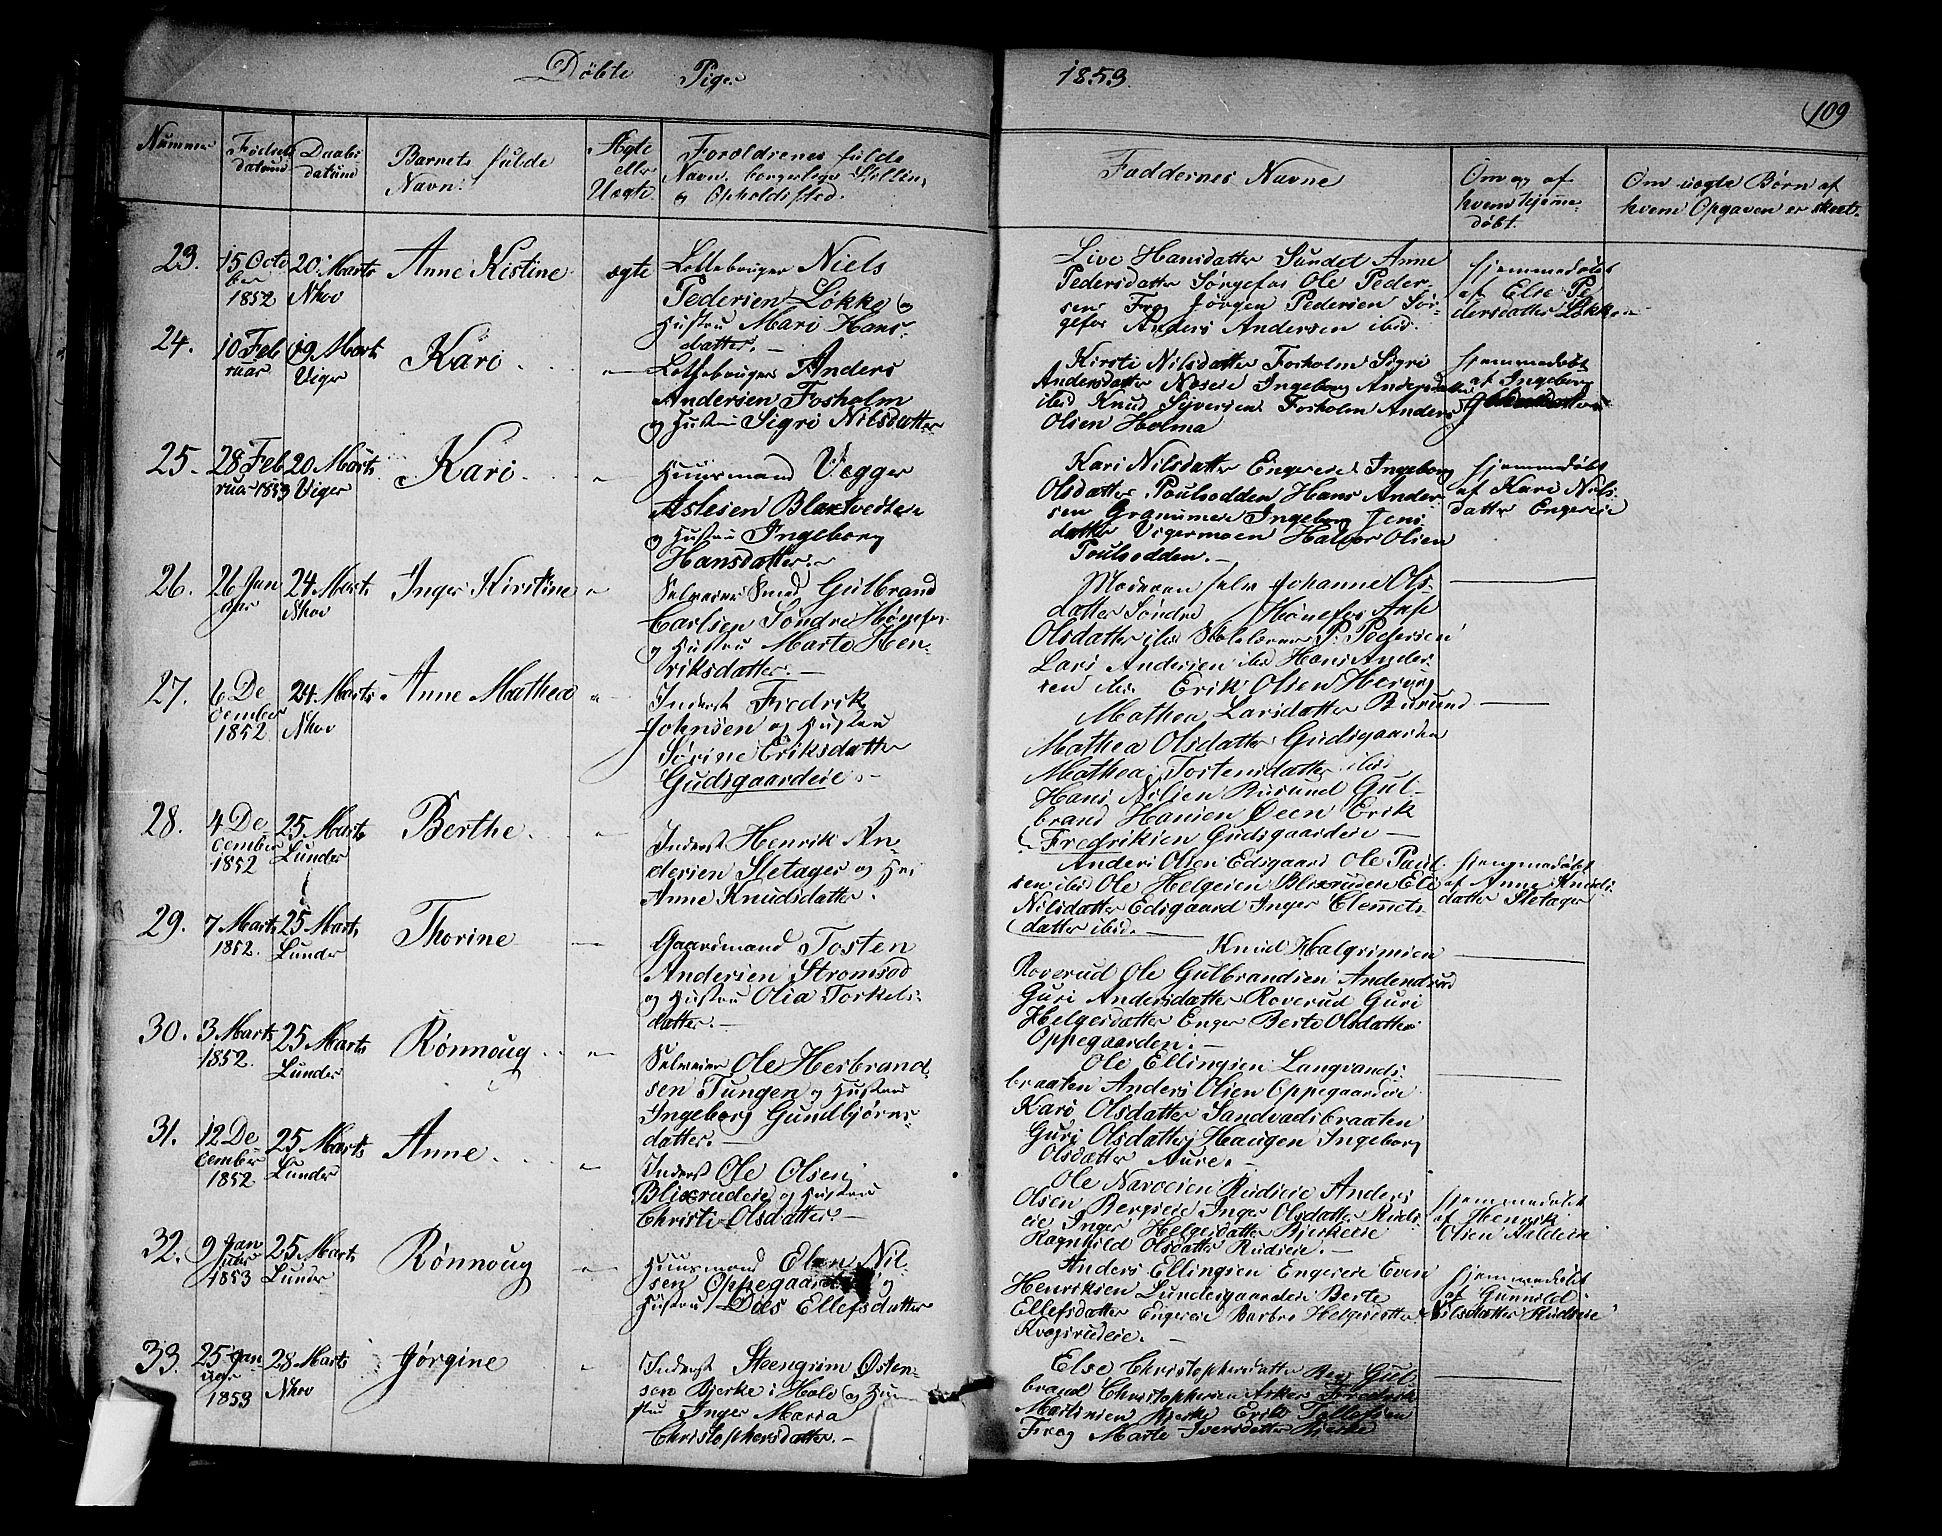 Døbte Piger 1853
109
Nummer
Fødsels
datum
Daabs
datum
Barnets fulde
Navn.
Ægte
eller
Uægte
Forældrenes fulde
Navn, borgerlige Stilling
og Opholdssted.
Faddernes Navne
Om og af
hvem hjemme-
døbt.
Om uægte Børn af
hvem Opgaven er skeet.
23. 15 Octo
ber
1852
20 Marts
Nhov
Anne Kistine ægte
Lottebruger Niels
Pedersen Løkke og
Hustru Mari Hans
datter.
Live Hansdatter Sundet Anne
Pedersdatter Sørgefos Ole Peder-
sen Frog Jørgen Pedersen Sør-
gefos Anders Andersen ibid.
hjemmedøbt
af Else Pe
dersdatter Løkken
24. 10 Feb
ruar
19 Marts
Viger
Kari "
Lottebruger Anders
Andersen Fosholm
og Hustru Sigri Nilsdatter
Kirsti Nilsdatter Fosholm Sigri
Andersdatter Næseie Ingeborg Andersdatter
ibid Knud Syversen Fosholm Anders
Olsen Holma
hjemmedøbt
af Ingeborg
25. 28 Feb
ruar 1853
20 Marts
Viger
Kari "
Huusmand Vegger
Aslesen Blaxtvedteie
og Hustru Ingeborg
Hansdatter.
Kari Nilsdatter Engereie Ingeborg
Olsdatter Poulsodden Hans Ander-
sen Granumeie Ingeborg Jens
datter Vigermoen Halvor Olsen
Poulsodden.
hjemmedøbt
af Kari Nils-
datter Engereie
26. 26 Jan
uar
24 Marts
Nhov
Inger Kirstine "
Selveier Smed Gulbrand
Carlsen Søndre Hønefos
og Hustru Marte Hen-
riksdatter.
Moderen selv Johanne Ols-
datter Søndre Hønefos Anse
Olsdatter ibid Skolelærer P. Pedersen
Lars Andersen ibid Hans Ander-
sen ibid Erik Olsen Hervig
27. 6 De
cember
1852
24 Marts
Nhov
Anne Mathea "
Inderst Fredrik
Johnsen og Hustru
Sørine Eriksdatter
Gudsgaardeie.
Mathea Larsdatter Busund
Mathea Olsdatter Gudsgaarden
Mathea Tostensdatter ibid
Hans Nilsen Busund Gul-
brand Hansen Øeen Erik
Fredriksen Gudsgaardeie
28. 4 De-
cember
1852
25 Marts
Lunder
Berthe. "
Inderst Henrik An-
dersen Sletager og Hu
Anne Knudsdatter.
Anders Olsen Edsgaard Ole Paul
sen ibid Ole Helgesen Blixrudeie Eli
Nilsdatter Edsgaard Inger Clemets-
datter ibid.
hjemmedøbt
af Anne Knuds-
datter Sletager
29. 7 Marts
1852.
25 Marts
Lunder
Thorine
Gaardmand Tosten
Andersen Stromsod
og Hustru Olia Torkels-
datter.
Knud Halgrimsen
Roverud Ole Gulbrandsen Andendrud
Guri Andersdatter Roverud Guri
Helgesdatter Enger Berte Olsdatter
Oppegaarden.
30. 3 Marts
1852.
25 Marts
Lunder
Rønnoug "
Selveier Ole Herbrand-
sen Tungen og Hustru
Ingeborg Gundbjørns
datter.
Ole Ellingsen Langvands-
braaten Anders Olsen Oppegaardeie
Kari Olsdatter Sandvadsbraaten
Guri Olsdatter Haugen Ingeborg
Olsdatter Aure.
31. 12 De
cember
1852
25 Marts
Lunder
Anne. "
Inderst Ole Olsen
Blixrudeie og Hustru
Christi Olsdatter.
Ole Narvesen Rudseie Anders
Olsen Bergseie Inger Olsdatter Ruds-
eie Inger Helgesdatter Bjerkeeie
Ragnhild Olsdatter Rudseie.
hjemmedøbt
af Henrik
Olsen
32. 9 Jan
uar
1853
25 Marts
Lunder
Rønnoug "
Huusmand Elen Nil-
sen Oppegaardeie og
Hustru Ellefsdatter
Anders Ellingsen Engereie Even
Henriksen Lundergaardeie Berte
Ellefsdatter Engereie Barbro Helgesdatter
Kragsrudeie.
hjemmedøbt
af Gunnild
Nilsdatter Rudseie
33. 25 Jan
uar
1853
28 Marts
Nhov
Jørgine "
Inderst Steengrim Østen-
sen Bjerke i Hole og Hu
stru Inger Maria
Christophersdatter.
Else Christophersdatter Berg Gul-
brand Christophersen Asker Fredrik
Martinsen Bjerke Erik Tollefsen
Frog Marte Iversdatter Bjerke